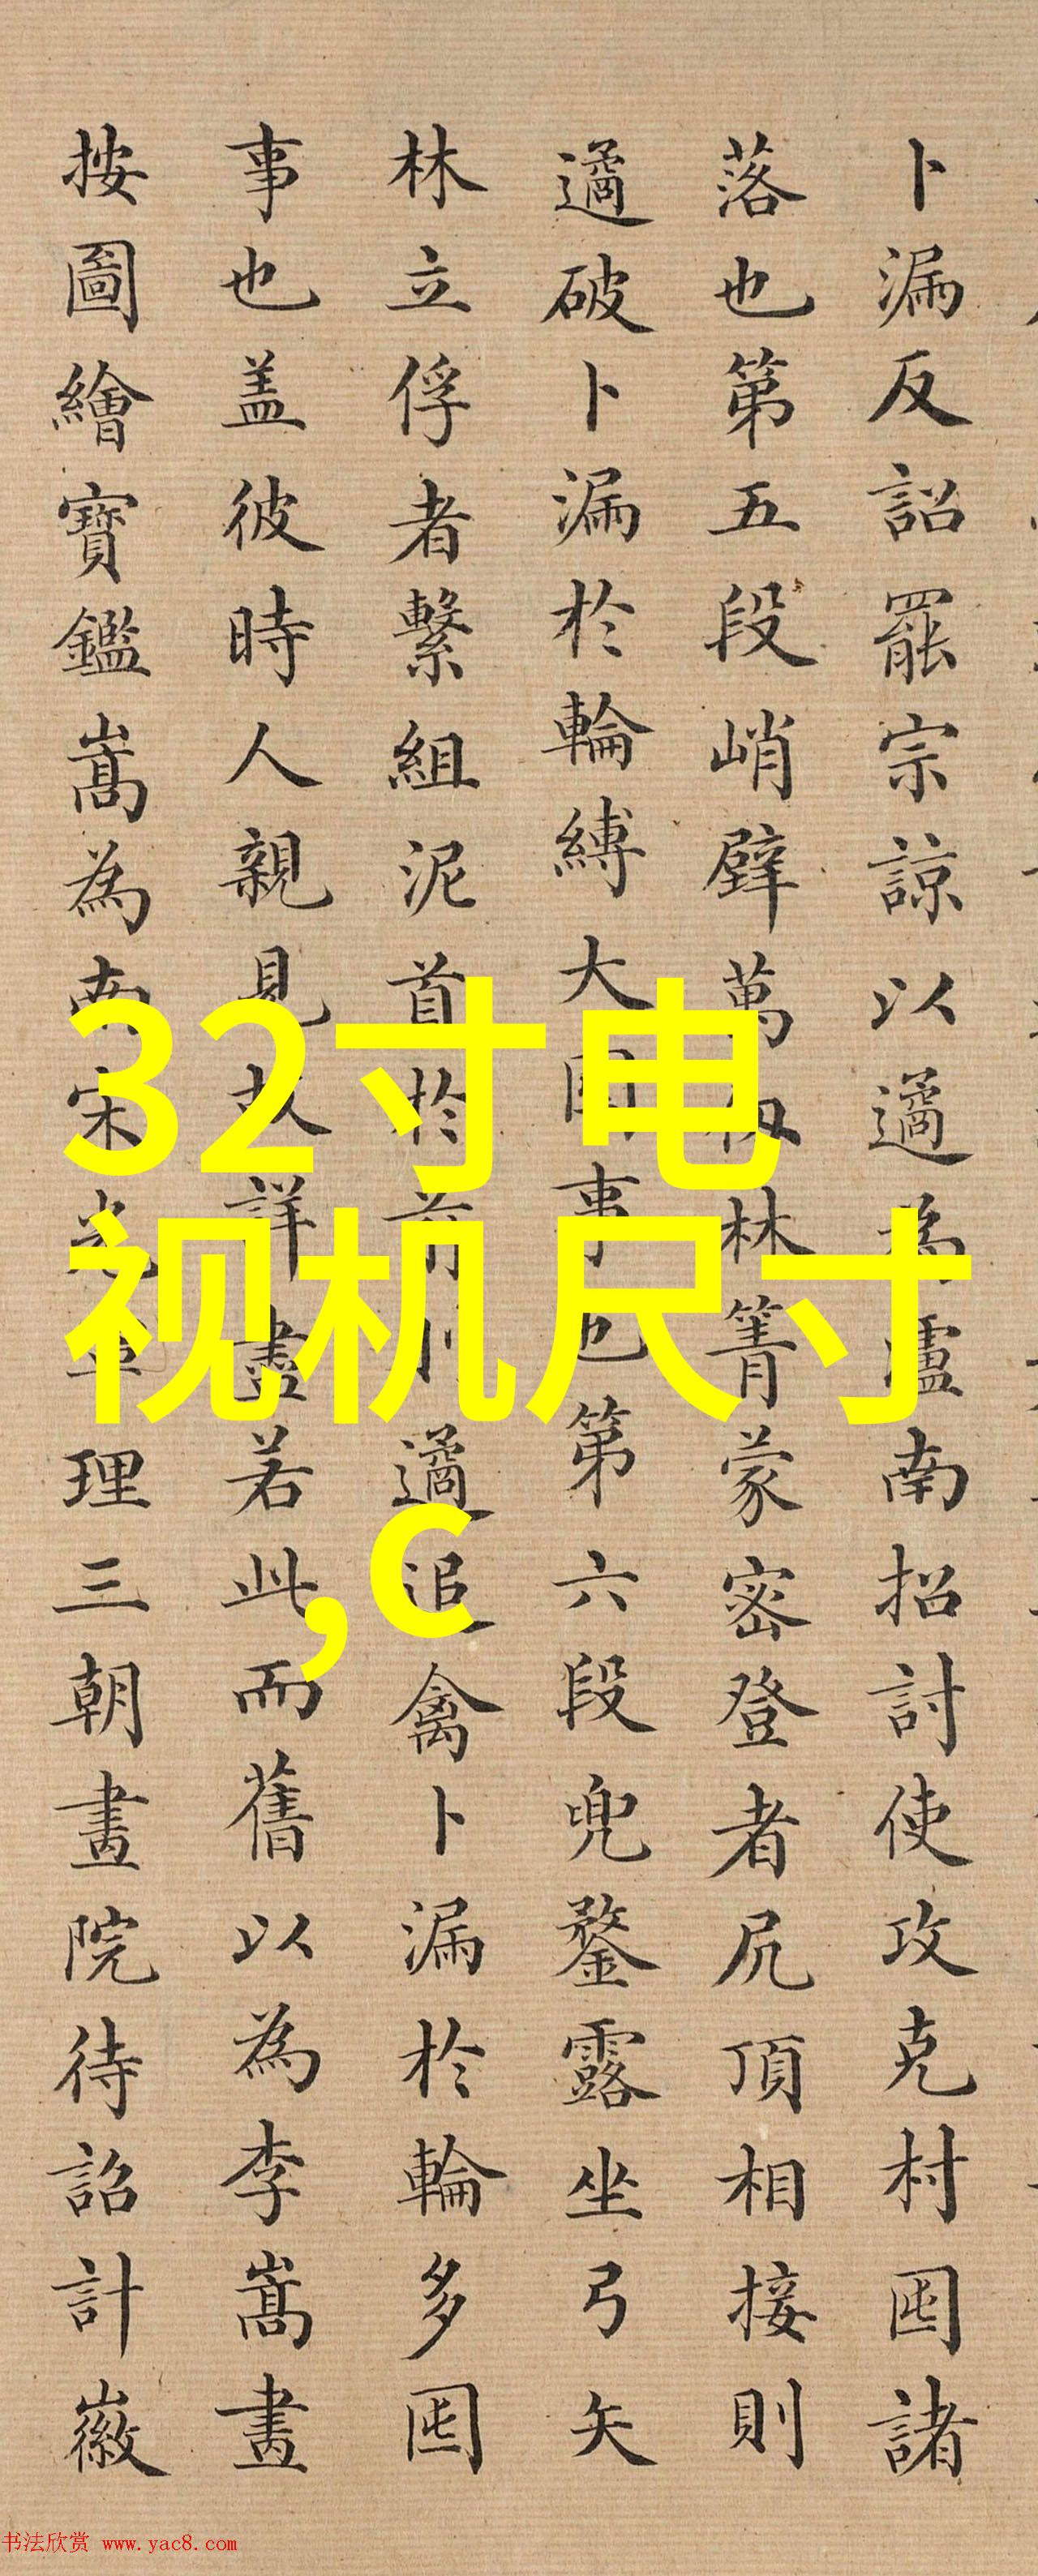 卜漏反詔罷宗諒以遹為瀘南招討使攻克村囤諸
落也第五段峭壁萬仞林箐蒙密登者尻頂相接則
遹破卜漏於輪縛大囤事也第六段兜鍪露坐弓矢
林立俘者繫組泥首於前則遹追禽卜漏於輪多囤
事也盖彼時人親見故詳盡若此而舊以為李嵩畫
按圖繪寶鑑嵩為南宋光寧理三朝畫院待詔計徽
32寸电
视机尺寸
,c
书法欣赏 www.yac8.com